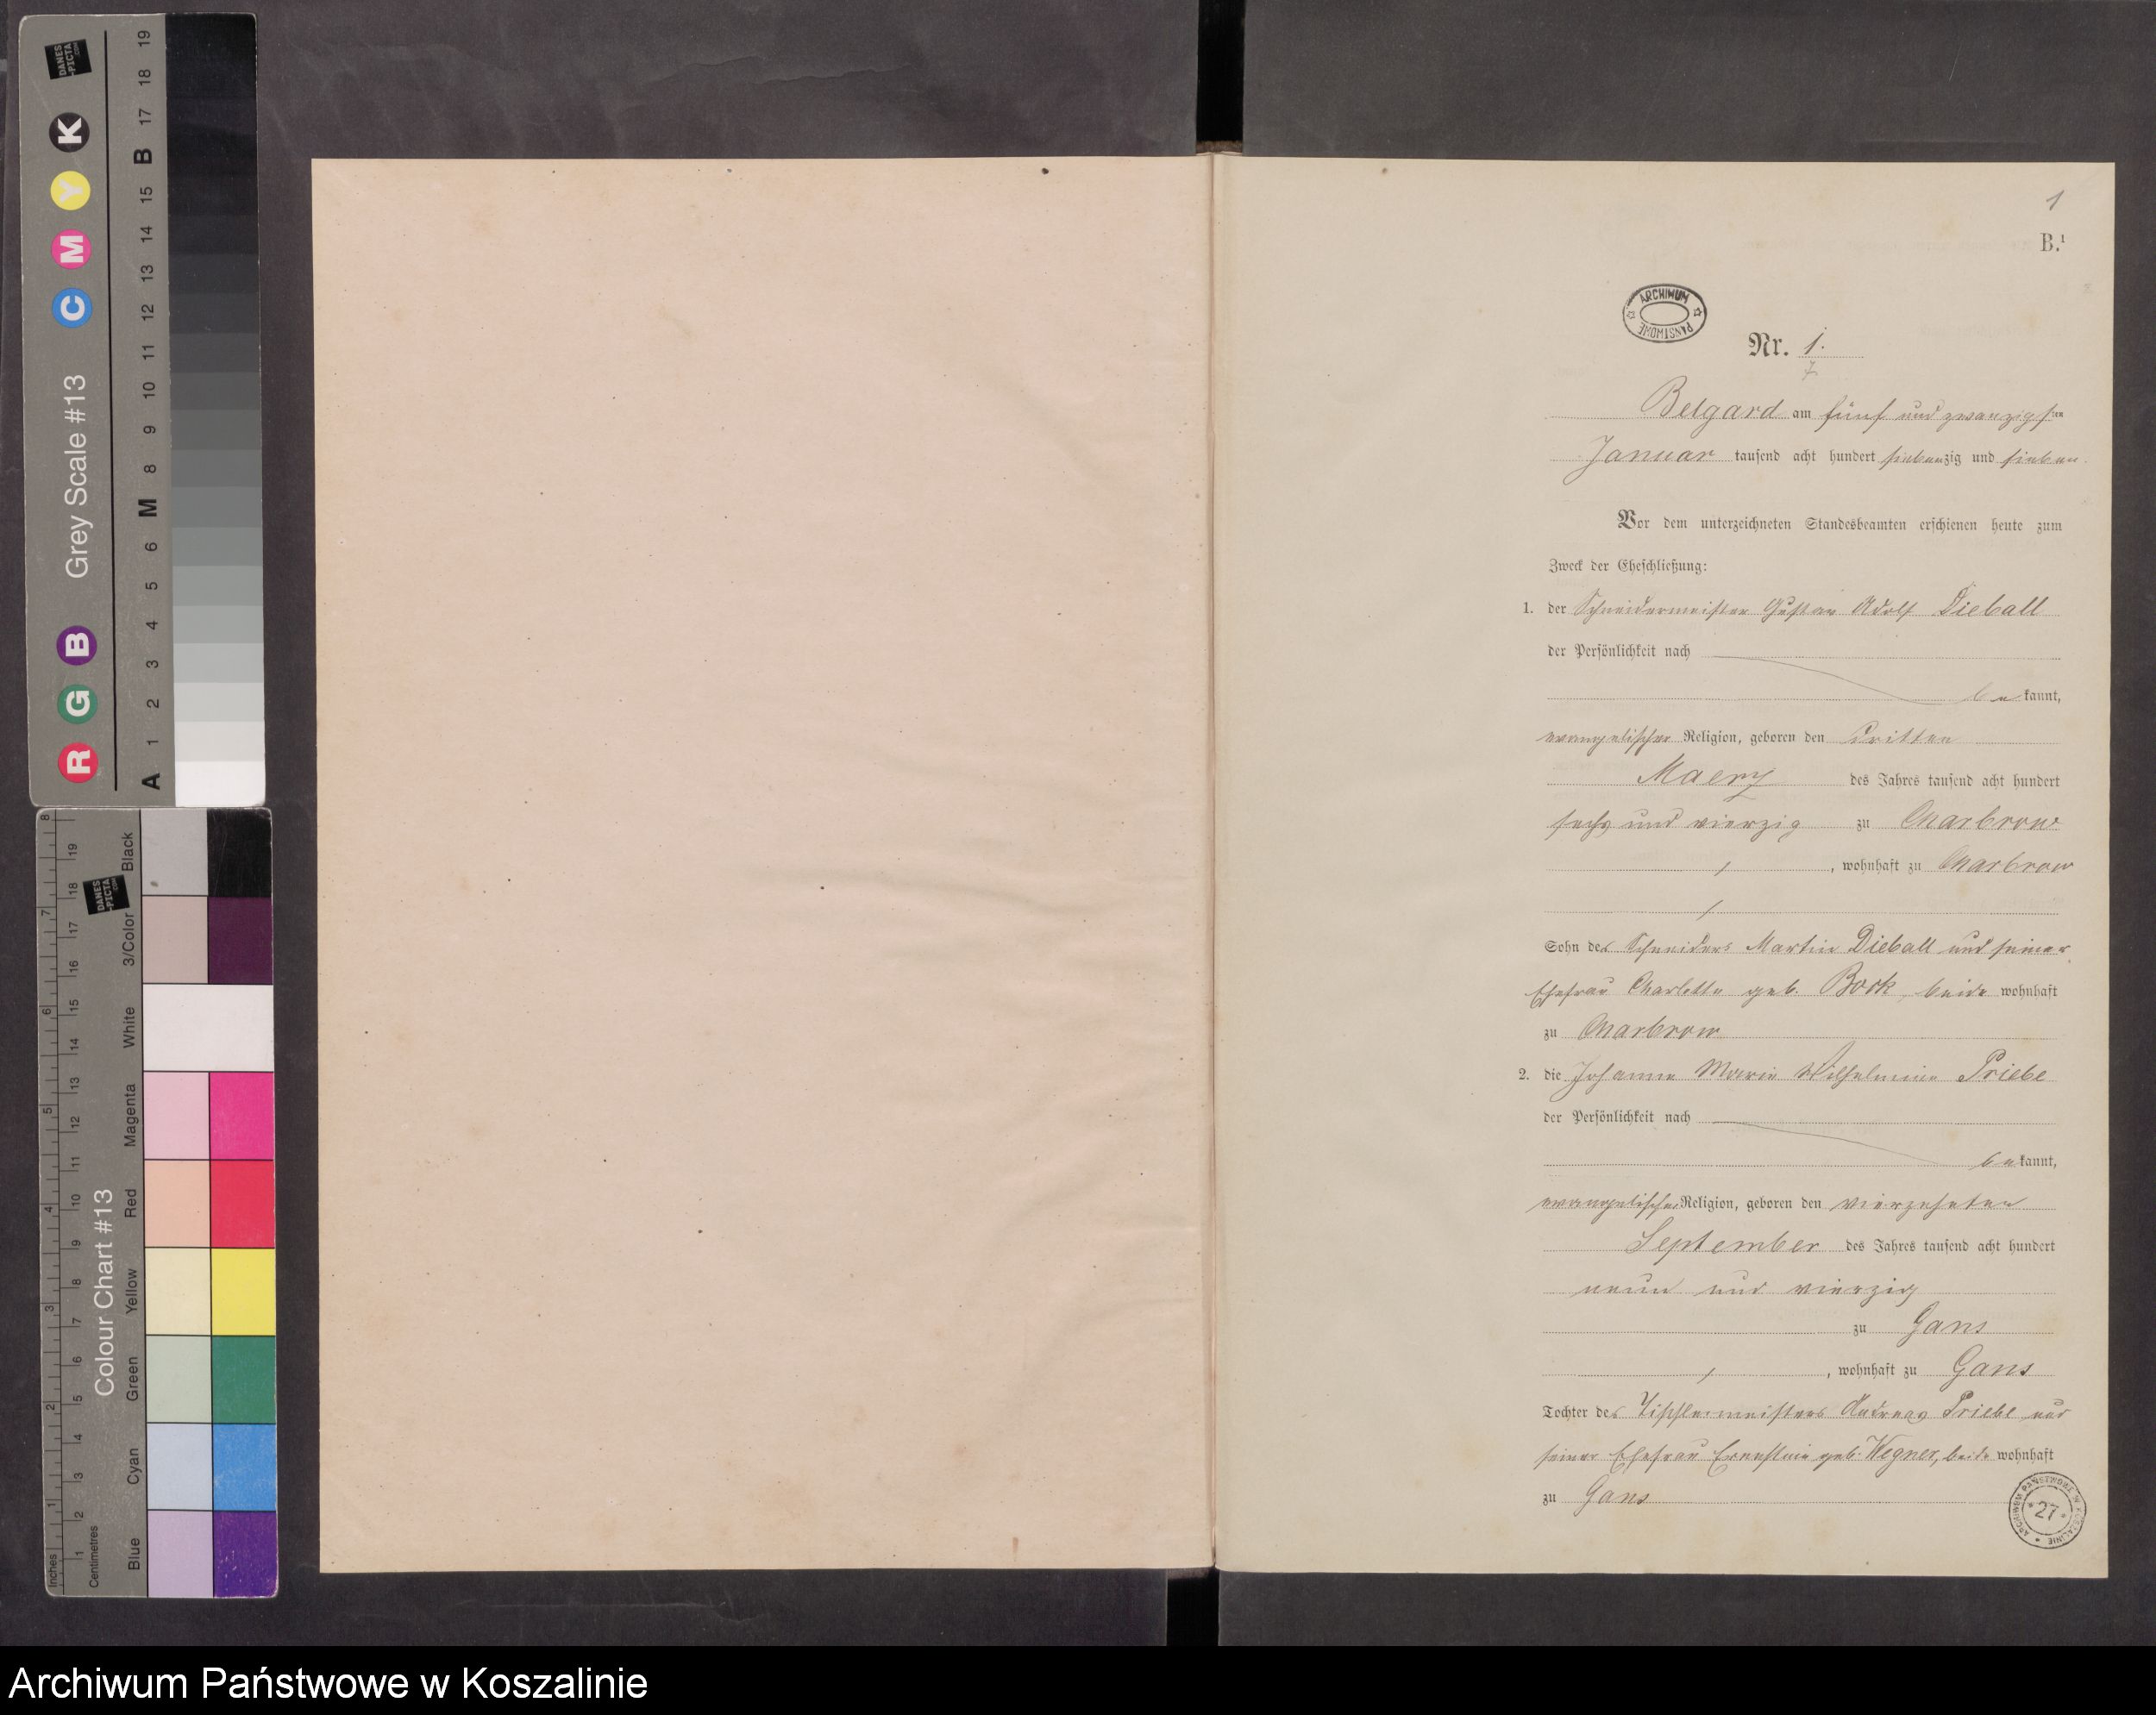 DANES
-PICTA
.COM
Grey Scale #13
R G B C M Y K
A 1 2 3 4 5 6 M 8 9 10 11 12 13 14 15 B 17 18 19
DANES
-PICTA
.COM
Colour Chart #13
Blue Cyan Green Yellow Red Magenta White 3/Color Black
Inches 1 2 3 4 5 6 7 8
Centimetres 1 2 3 4 5 6 7 8 9 10 11 12 13 14 15 16 17 18 19
1
B.¹
ARCHIWUM PAŃSTWOWE
Nr. 1.
7
Belgard am fünf und zwanzigsten
Januar tausend acht hundert siebenzig und sieben.
Vor dem unterzeichneten Standesbeamten erschienen heute zum
Zweck der Eheschließung:
1. der Schneidermeister Gustav Adolf Dieball
der Persönlichkeit nach
bekannt,
evangelischer Religion, geboren den dritten
Maerz des Jahres tausend acht hundert
sechs und vierzig zu Charbrow
, wohnhaft zu Charbrow
Sohn des Schneiders Martin Dieball und seiner
Ehefrau Charlotte geb. Bock, beide wohnhaft
zu Charbrow
2. die Johanne Marie Wilhelmine Priebe
der Persönlichkeit nach
bekannt,
evangelischer Religion, geboren den vierzehnten
September des Jahres tausend acht hundert
neun und vierzig
zu Gans
, wohnhaft zu Gans
Tochter des Tischlermeisters Andreas Priebe und
seiner Ehefrau Ernestine geb. Wegner, beide wohnhaft
zu Gans
ARCHIWUM PAŃSTWOWE W KOSZALINIE
* 27 *
Archiwum Państwowe w Koszalinie